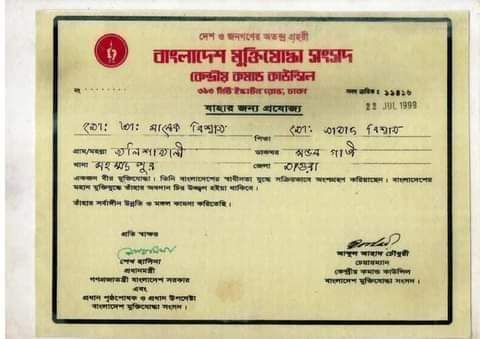 দেশ ও জনগণের অতন্দ্র প্রহরী
বাংলাদেশ মুক্তিযোদ্ধা সংসদ
কেন্দ্রীয় কমান্ড কাউন্সিল
৩৯৩ নিউ ইস্কাটন রোড, ঢাকা
নং
যাহার জন্য প্রযোজ্য
22 JUL 1999
মো: আ: মালেক বিশ্বাস পিতা মো: বিশ্বাস
গ্রাম/মহল্লা ডাকঘর মন্ডল গাতী
থানা মহম্মদপুর জেলা মাগুরা
একজন বীর মুক্তিযোদ্ধা। তিনি বাংলাদেশের স্বাধীনতা যুদ্ধে সক্রিয়ভাবে অংশগ্রহণ করিয়াছেন। বাংলাদেশের
মহান মুক্তিযুদ্ধে তাঁহার অবদান চির উজ্জ্বল হইয়া থাকিবে।
তাঁহার সর্বাঙ্গীন উন্নতি ও মঙ্গল কামনা করিতেছি।
প্রতি স্বাক্ষর
শেখ হাসিনা
প্রধানমন্ত্রী
গণপ্রজাতন্ত্রী বাংলাদেশ সরকার
এবং
প্রধান পৃষ্ঠপোষক ও প্রধান উপদেষ্টা
বাংলাদেশ মুক্তিযোদ্ধা সংসদ।
আব্দুল আহাদ চৌধুরী
চেয়ারম্যান
কেন্দ্রীয় কমান্ড কাউন্সিল
বাংলাদেশ মুক্তিযোদ্ধা সংসদ।